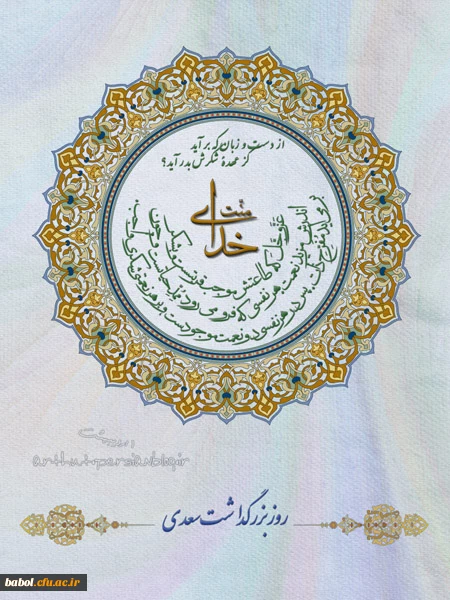 از دست و زبان که برآید
کز عهدهٔ شکرش بدر آید؟
منت
خدای
عزوجل که طاعتش موجب قربتست و بشکر
اندرش مزید نعمت هر نفسی که فرو می رود ممد حیاتست و چون
بر می آید مفرح ذات پس در هر نفسی دو نعمت موجودست و بر هر نعمتی شکری واجب
روز بزرگداشت سعدی
babol.cfu.ac.ir